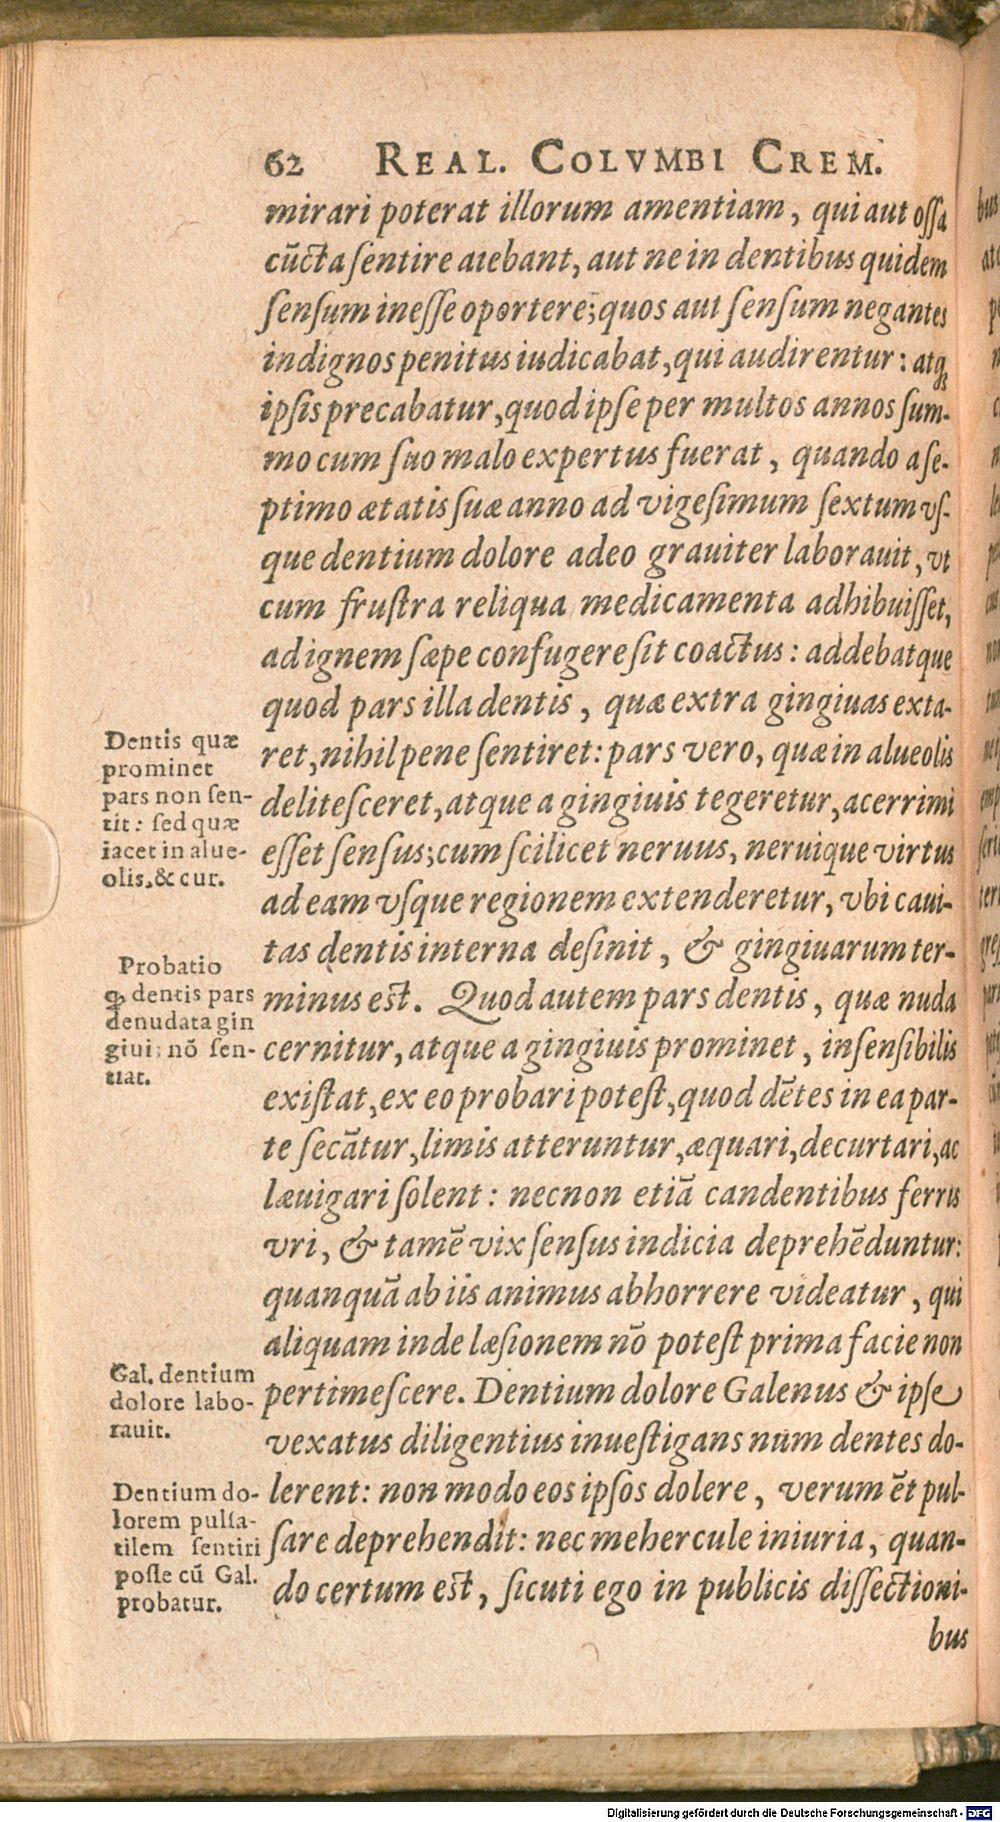 62 REAL. COLVMBI CREM.
mirari poterat illorum amentiam, qui aut ossa
cūcta sentire aiebant, aut ne in dentibus quidem
sensum inesse oportere; quos aut sensum negantes
indignos penitus iudicabat, qui audirentur: atq;
ipsis precabatur, quod ipse per multos annos sum-
mo cum suo malo expertus fuerat, quando a se-
ptimo ætatis suæ anno ad vigesimum sextum vs-
que dentium dolore adeo grauiter laborauit, vt
cum frustra reliqua medicamenta adhibuisset,
ad ignem sæpe confugere sit coactus: addebatque
quod pars illa dentis, quæ extra gingiuas exta-
ret, nihil pene sentiret: pars vero, quæ in alueolis
delitesceret, atque a gingiuis tegeretur, acerrimi
esset sensus; cum scilicet neruus, neruique virtus
ad eam vsque regionem extenderetur, vbi caui-
tas dentis interna desinit, & gingiuarum ter-
minus est. Quod autem pars dentis, quæ nuda
cernitur, atque a gingiuis prominet, insensibilis
existat, ex eo probari potest, quod dētes in ea par-
te secātur, limis atteruntur, æquari, decurtari, ac
læuigari solent: necnon etiā candentibus ferris
vri, & tamē vix sensus indicia deprehēduntur:
quanquā ab iis animus abhorrere videatur, qui
aliquam inde læsionem nō potest prima facie non
pertimescere. Dentium dolore Galenus & ipse
vexatus diligentius inuestigans num dentes do-
lerent: non modo eos ipsos dolere, verum ēt pul-
sare deprehendit: nec mehercule iniuria, quan-
do certum est, sicuti ego in publicis dissectioni-
bus
Dentis quæ
prominet
pars non sen-
tit: sed quæ
iacet in alue-
olis, & cur.
Probatio
ꝙ dentis pars
denudata gin
giui; nō sen-
tiat.
Gal. dentium
dolore labo-
rauit.
Dentium do-
lorem pulsa-
tilem sentiri
posse cū Gal.
probatur.
Digitalisierung gefördert durch die Deutsche Forschungsgemeinschaft - DFG